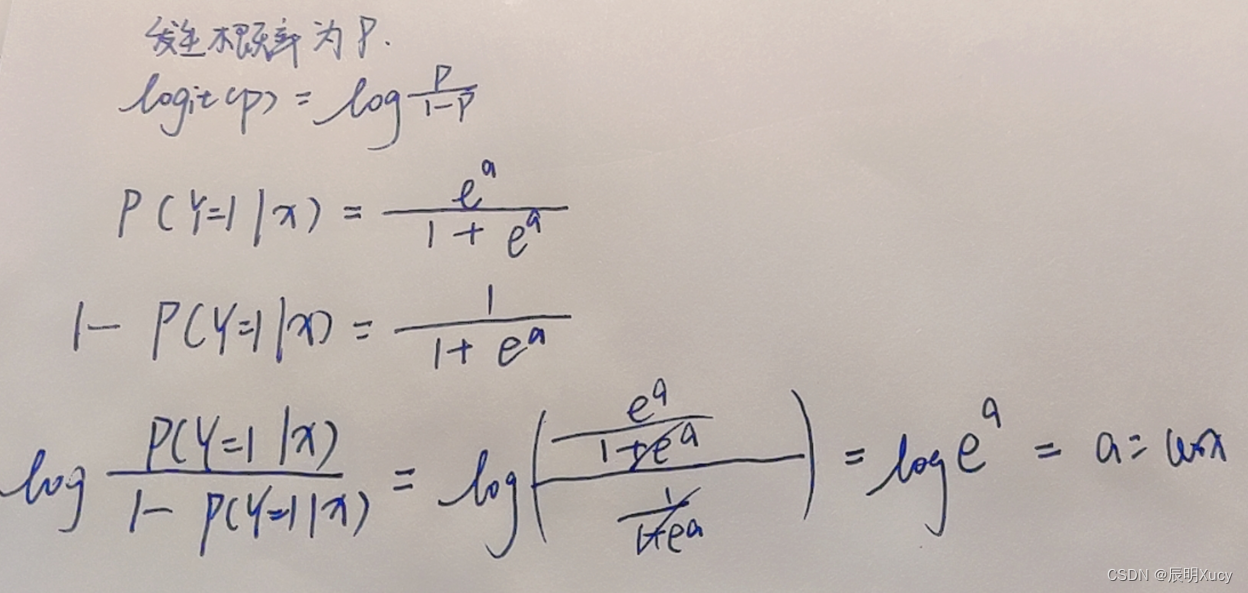 发生概率为 P.
logit(p) = log P/(1-P)
P(Y=1|x) = e^a/(1+e^a)
1- P(Y=1|x) = 1/(1+e^a)
log P(Y=1|x)/(1-P(Y=1|x)) = log((e^a/(1+e^a))/(1/(1+e^a))) = log e^a = a = w·x
CSDN @辰明Xucy